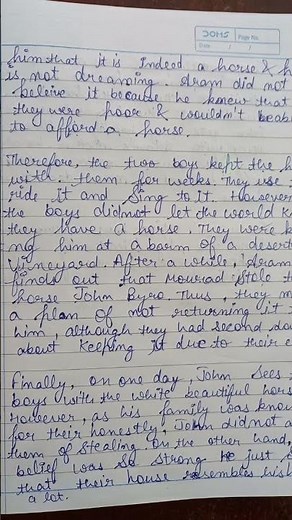 DOMS Page No.
Date / /
him that it is Indeed a horse & h
is not dreaming. Aram did not
beleive it because he knew that
they were poor & wouldn't beab
to afford a horse.
Therefore, the two boys kept the h
with them for weeks. They use t
ride it and sing to it. However
the boys didnot let the world k
they have a horse. They were k
ng him at a barm of a desert
Vineyard. After a while, Aram
finds out that Mourad stole t
horse John Byro. Thus, they m
a plan of not returning it t
him, although they had second do
about keeping it due to their e
Finally, on one day, John sees
boys with the white beautiful hors
However, as his family was know
for their honestly, John did not a
them of stealing. On the other hand,
belief was so strong he just s
that their house resembles his
a lot.